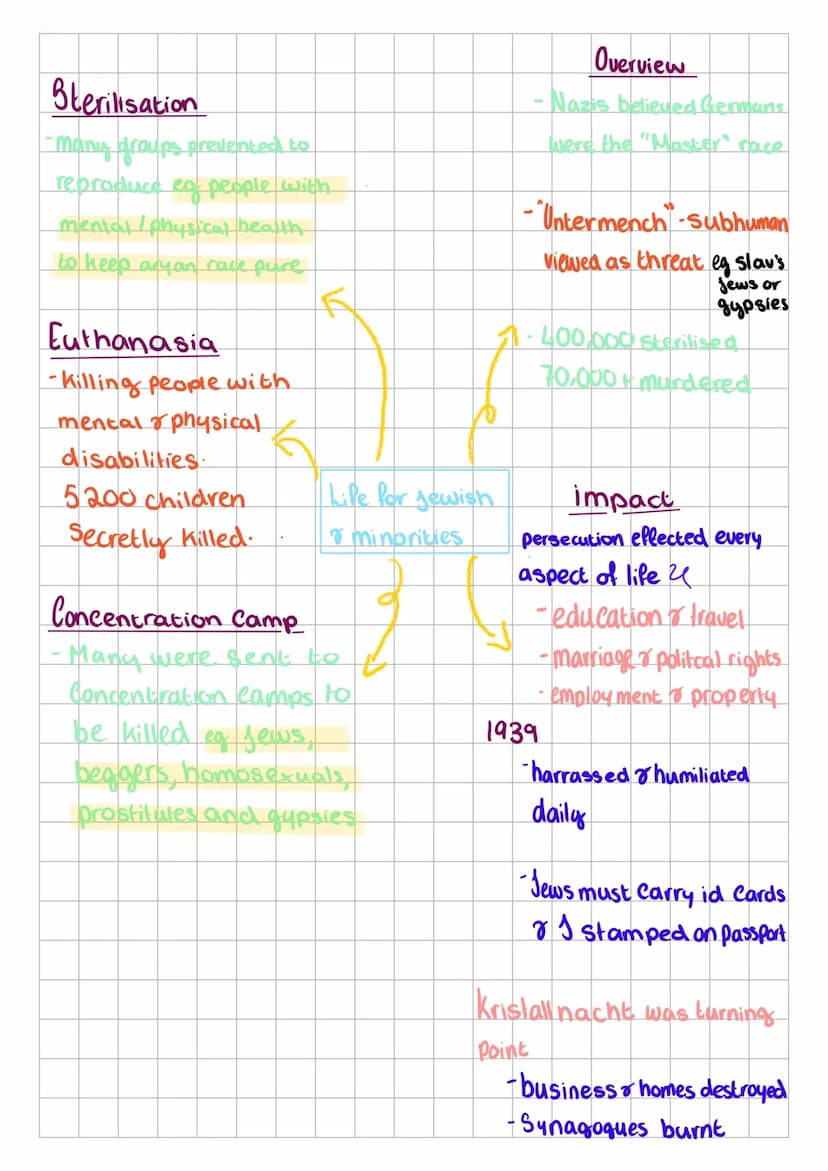 Sterilisation
- Many groups prevented to
reproduce eg people with
mental / physical health
to keep aryan race pure
Euthanasia
- Killing people with
mental & physical
disabilities.
5200 children
Secretly killed.
Concentration camp
- Many were sent to
Concentration camps to
be killed eg Jews,
beggers, homosexuals,
prostitutes and gypsies
Life for Jewish
& minorities
Overview
- Nazis believed Germans
were the "Master" race
- "Untermench" - subhuman
viewed as threat eg slav's
Jews or
gypsies
- 400,000 sterilised
70,000 + murdered
impact
persecution effected every
aspect of life
- education & travel
- marriage & politcal rights
- employment & property
1939
- harrassed & humiliated
daily
- Jews must carry id cards
& J stamped on passport
Kristallnacht was turning
point
- business & homes destroyed
- Synagogues burnt